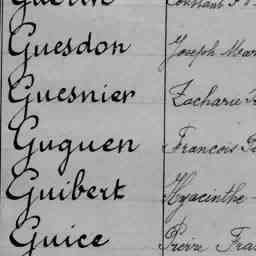 Guesdon Joseph
Guesnier Zacharie
Guguen Francois
Guibert Hyacinthe
Guice Pierre